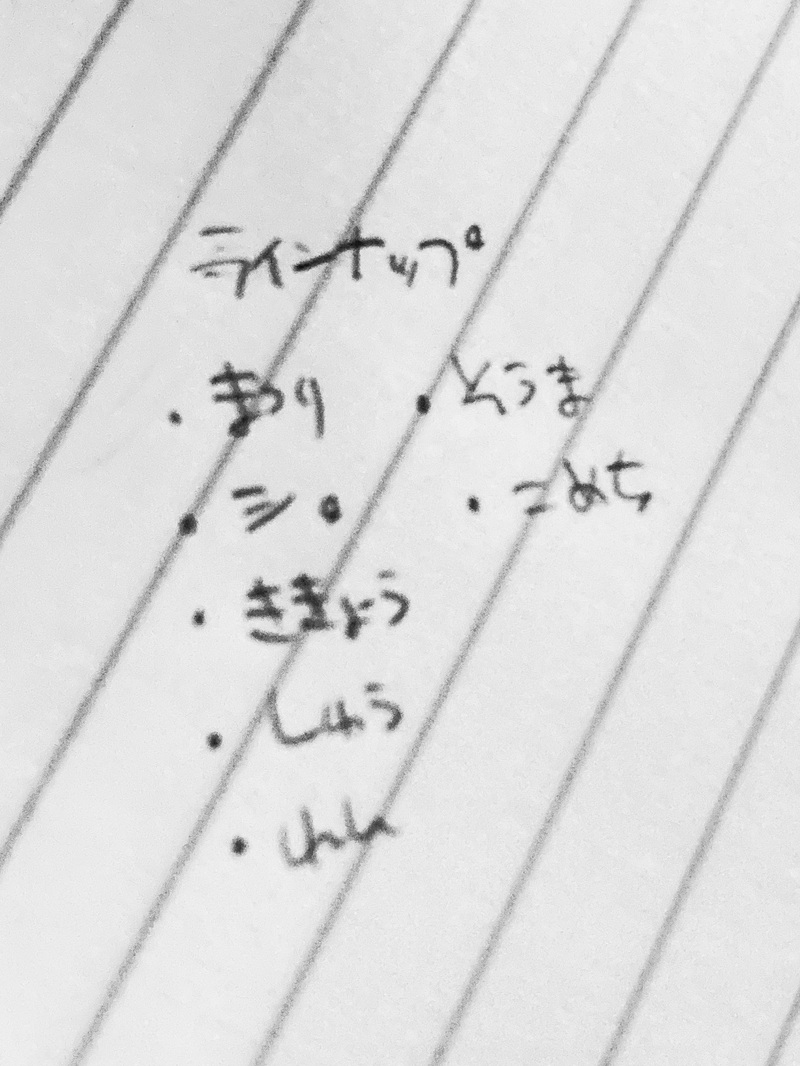 ラインナップ
・まつり
・ミロ
・ききょう
・しゅう
・とうま
・こめち